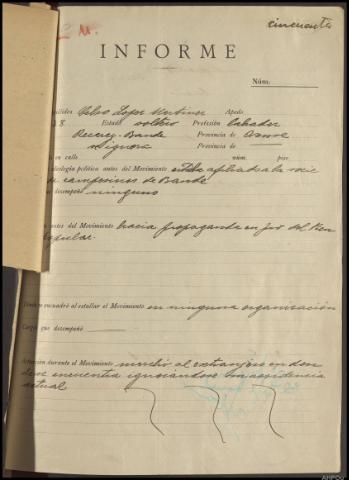 cincuenta
INFORME
Núm.
Celso Lopez Martinez Apodo
8 Estado soltero Profesión labrador
Bande Provincia de Orense
se ignora Provincia de
en calle núm. piso
ideología política antes del Movimiento afiliado a la socie
campesinos de Bande
desempeñó ninguno
antes del Movimiento hacia propaganda en fvr del Fren
popular.
se encuadró al estallar el Movimiento en ninguna organización
Cargo que desempeñó
Actuación durante el Movimiento marchó al extranjero en don
de se encuentra ignorándose su residencia
actual